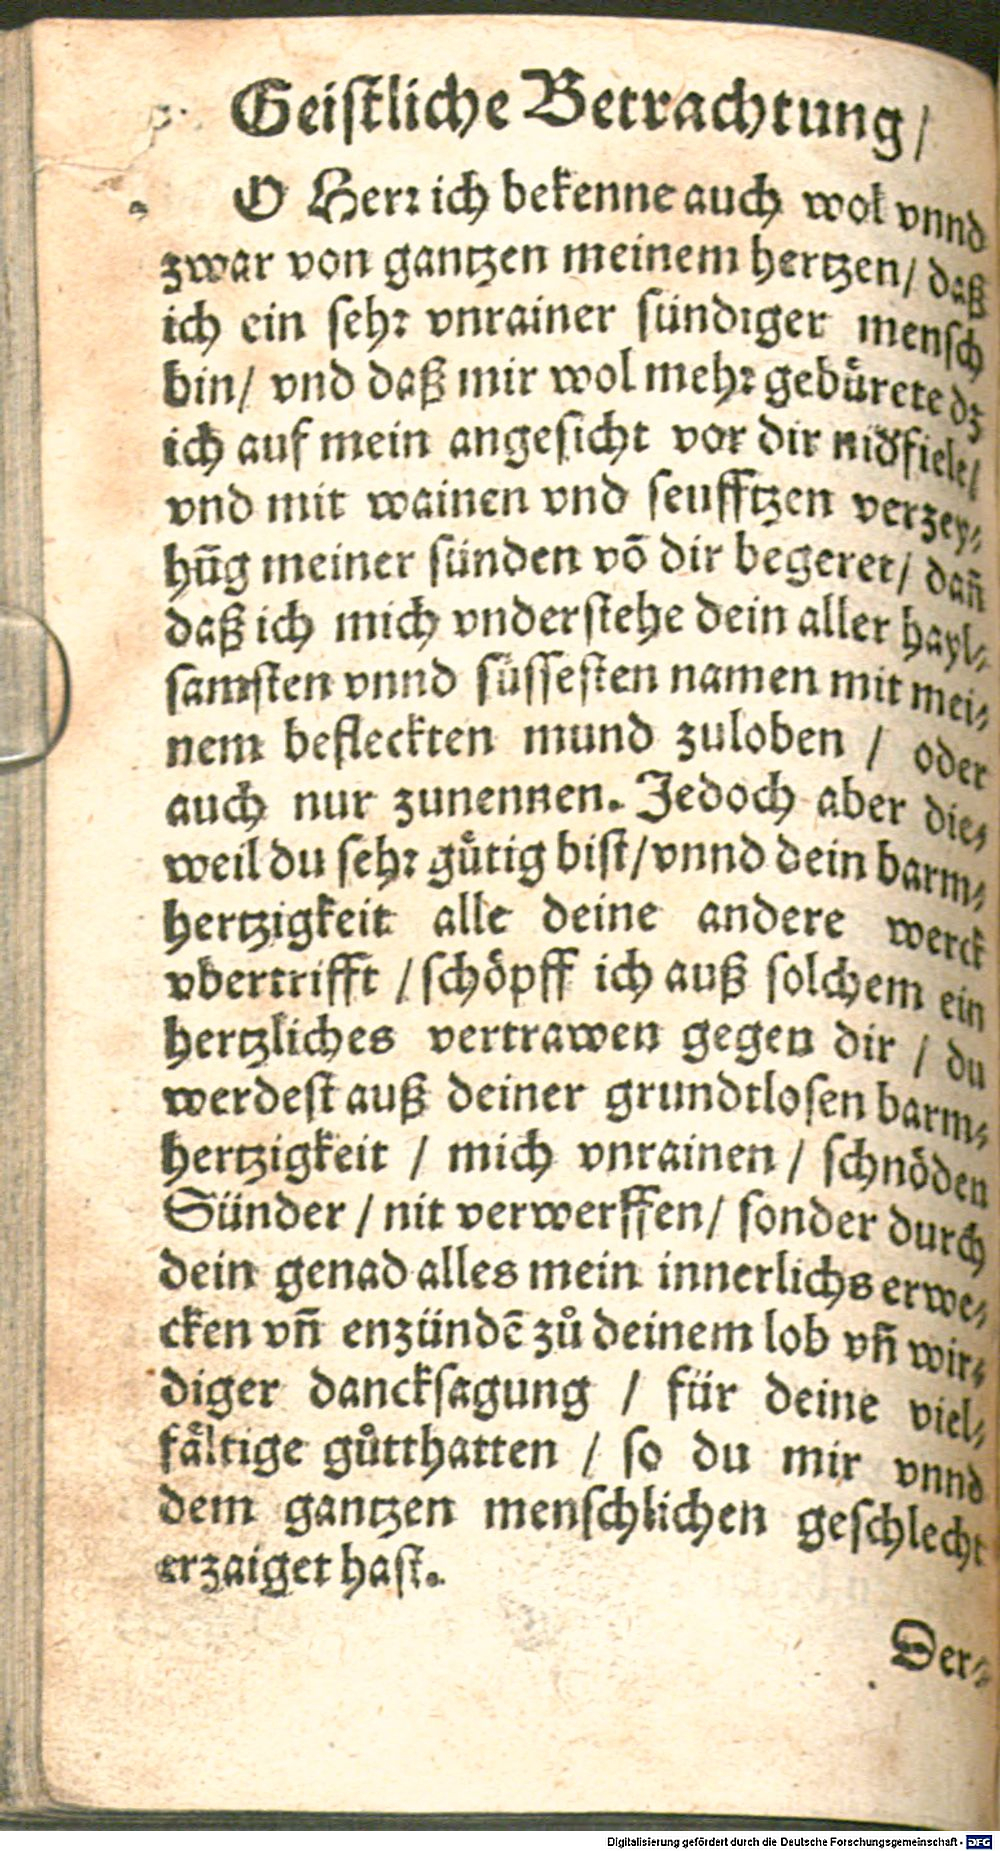 Geiſtliche Betrachtung/
O Herꝛ ich bekenne auch wol vnnd
zwar von gantzen meinem hertzen/ daß
ich ein ſehꝛ vnrainer ſündiger menſch
bin/ vnd daß mir wol mehꝛ gebürete dz
ich auf mein angeſicht vor dir nidꝰfiele/
vnd mit wainen vnd ſeufftzen verzey⸗
hūg meiner ſünden võ dir begeret/ dañ
daß ich mich vnderſtehe dein aller hayl⸗
ſamſten vnnd ſüſſeſten namen mit mei⸗
nem befleckten mund zuloben / oder
auch nur zunennen. Jedoch aber die⸗
weil du ſehꝛ gůtig biſt/vnnd dein barm⸗
hertzigkeit alle deine andere werck
vbertrifft / ſchöpff ich auß ſolchem ein
hertzliches vertrawen gegen dir / du
werdeſt auß deiner grundtloſen barm⸗
hertzigkeit / mich vnrainen / ſchnöden
Sünder / nit verwerffen/ ſonder durch
dein genad alles mein innerlichs erwe⸗
cken vñ enzündẽ zů deinem lob vñ wir⸗
diger danckſagung / für deine viel⸗
fältige gůtthatten / ſo du mir vnnd
dem gantzen menſchlichen geſchlecht
erzaiget haſt.
Der⸗
Digitalisierung gefördert durch die Deutsche Forschungsgemeinschaft - DFG